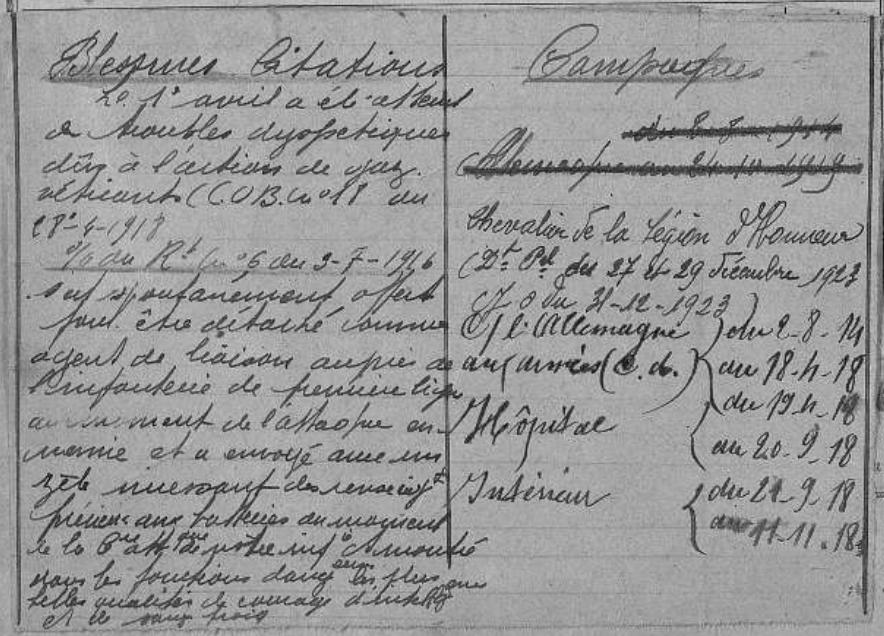 Blessures Citations
Le 1er avril a été atteint
de troubles dyspeptiques
dûs à l'action de gaz
vésicants (C.O.B. no 18 du
28-4-1918
O/ du Rt no 6 du 3-7-1916
S'est spontanément offert
pour être détaché comme
agent de liaison auprès de
l'infanterie de première ligne
au moment de l'attaque en-
nemie et a envoyé avec un
zèle incessant des renseigts
précieux aux batteries au moment
de la att notre infie A montré
dans les fonctions dang les plus
belles qualités de courage d'intellig
et de sang froid
Campagnes
du 2-8-1914
Allemagne au 24-10-1919
Chevalier de la Légion d'Honneur
(Dt Pel des 27 et 29 décembre 1923
J.O du 31-12-1923)
C/ l'Allemagne } du 2-8-14
aux armées (C.d.) { au 18-4-18
Hôpital } du 19-4-18
{ au 20-9-18
Intérieur { du 21-9-18
au 11-11-18